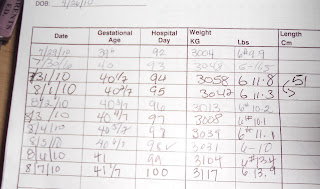 DOB 4/26/10
Date Gestational Age Hospital Day Weight KG Lbs Length Cm
7/29/10 39⁶ 92 3004 6# 9.9
7/30/10 40 93 3048
7/31/10 40 1/7 94 3058 6 11.8 51
8/1/10 40²/7 95 3042 6 11.3
8/2/10 40 3/7 96 3013 6# 10.2
8/3/10 40 4/7 97 3008 6# 10.1
8/4/10 40 5/7 98 3039 6# 11.1
8/5/10 3031 6-10
8/6/10 41 99 3104 6# 13.4
8/7/10 41 1/7 100 3117 6 13.9